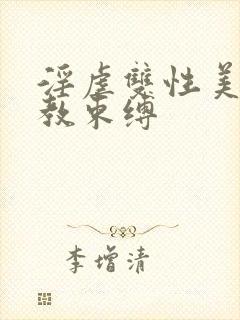 淫虐雙性美
教束縛
李增清